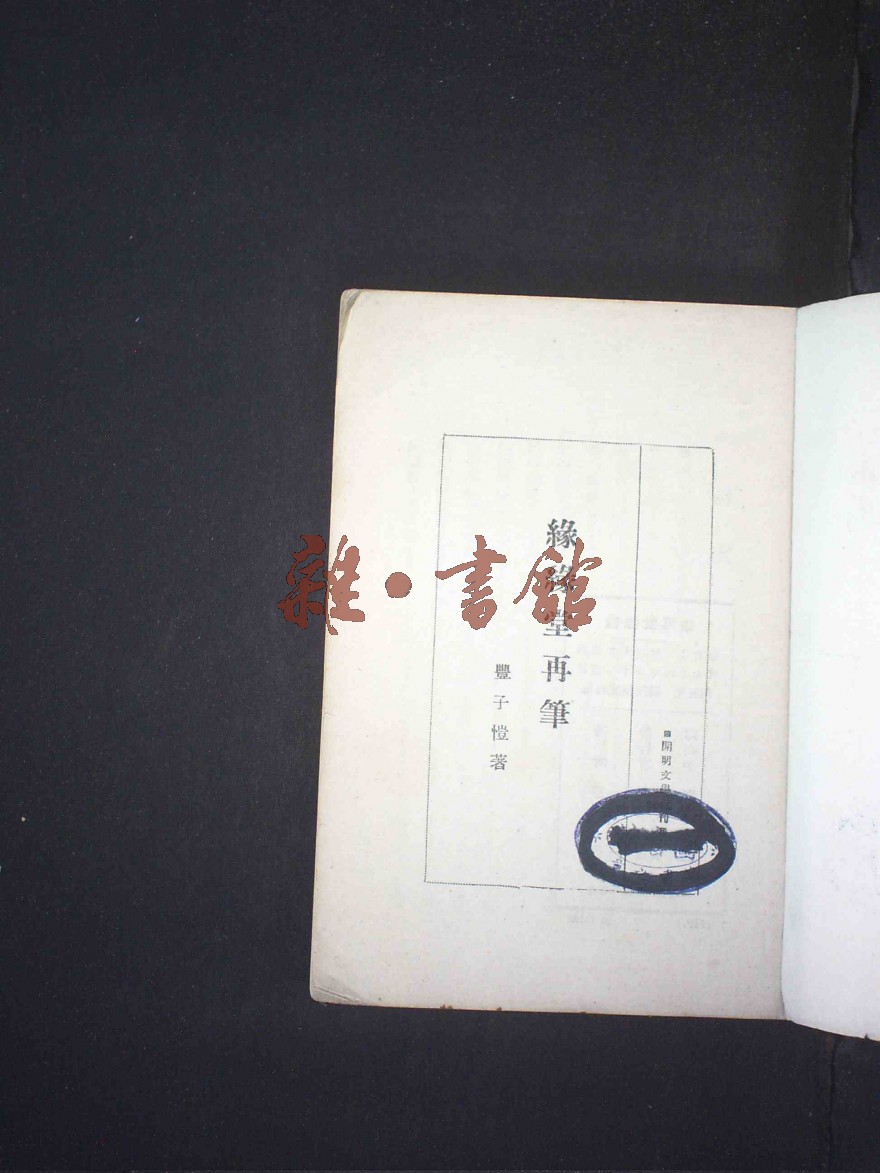 開明文學
緣緣堂再筆
豐子愷著
雜·書館